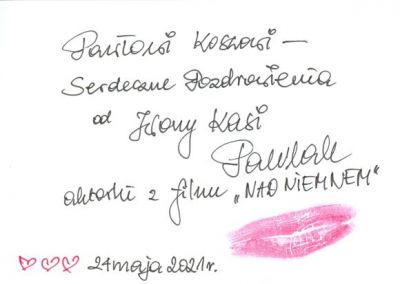 Pawłowi Kossowi –
Serdeczne Pozdrowienia
od Iwony Kasi
Pawlak
aktorki z filmu „NAD NIEMNEM”
24 maja 2021 r.